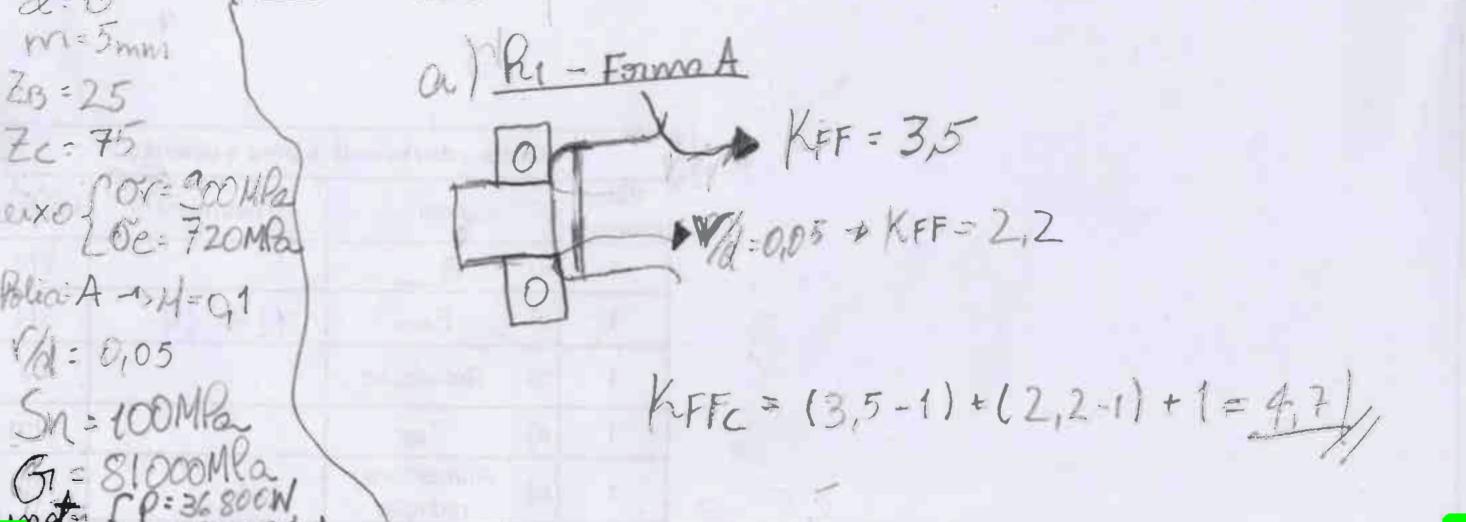 m=5mm
ZB=25
Zc=75
eixo { σr=900MPa
σe=720MPa
Polia: A → μ=0,1
r/d=0,05
Sn=100MPa
G=81000MPa
P=36800W
a) R1 - Forma A
KFF=3,5
r/d=0,05 → KFF=2,2
KFFc=(3,5-1)+(2,2-1)+1=4,7